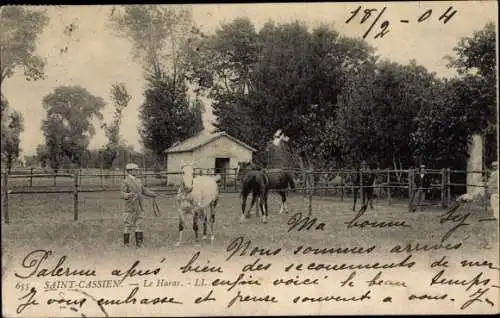 18/2-04
Ma bonne Sy
Nous sommes arrivés à
Palerme après bien des secouements de mer
655 SAINT-CASSIEN. — Le Haras. — LL.
enfin voici le beau temps
Je vous embrasse et pense souvent à vous